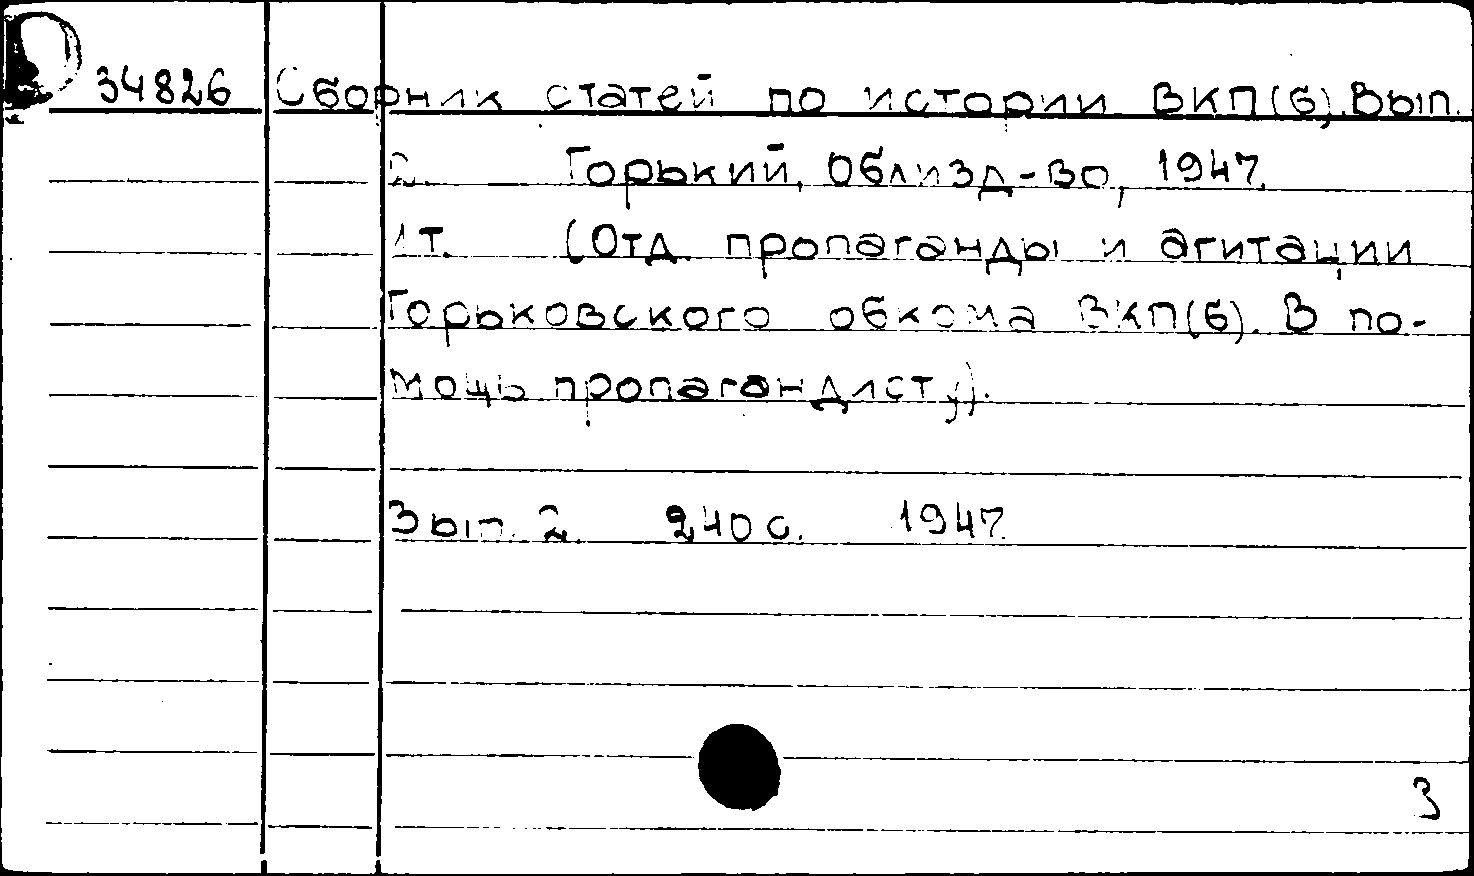 34826 Сборник статей по истории ВКП(б). Вып.
2. Горький, Облизд-во, 1947.
1т. (Отд. пропаганды и агитации
Горьковского обкома ВКП(б). В по-
мощь пропагандисту).
Вып. 2. 240 с. 1947.
3